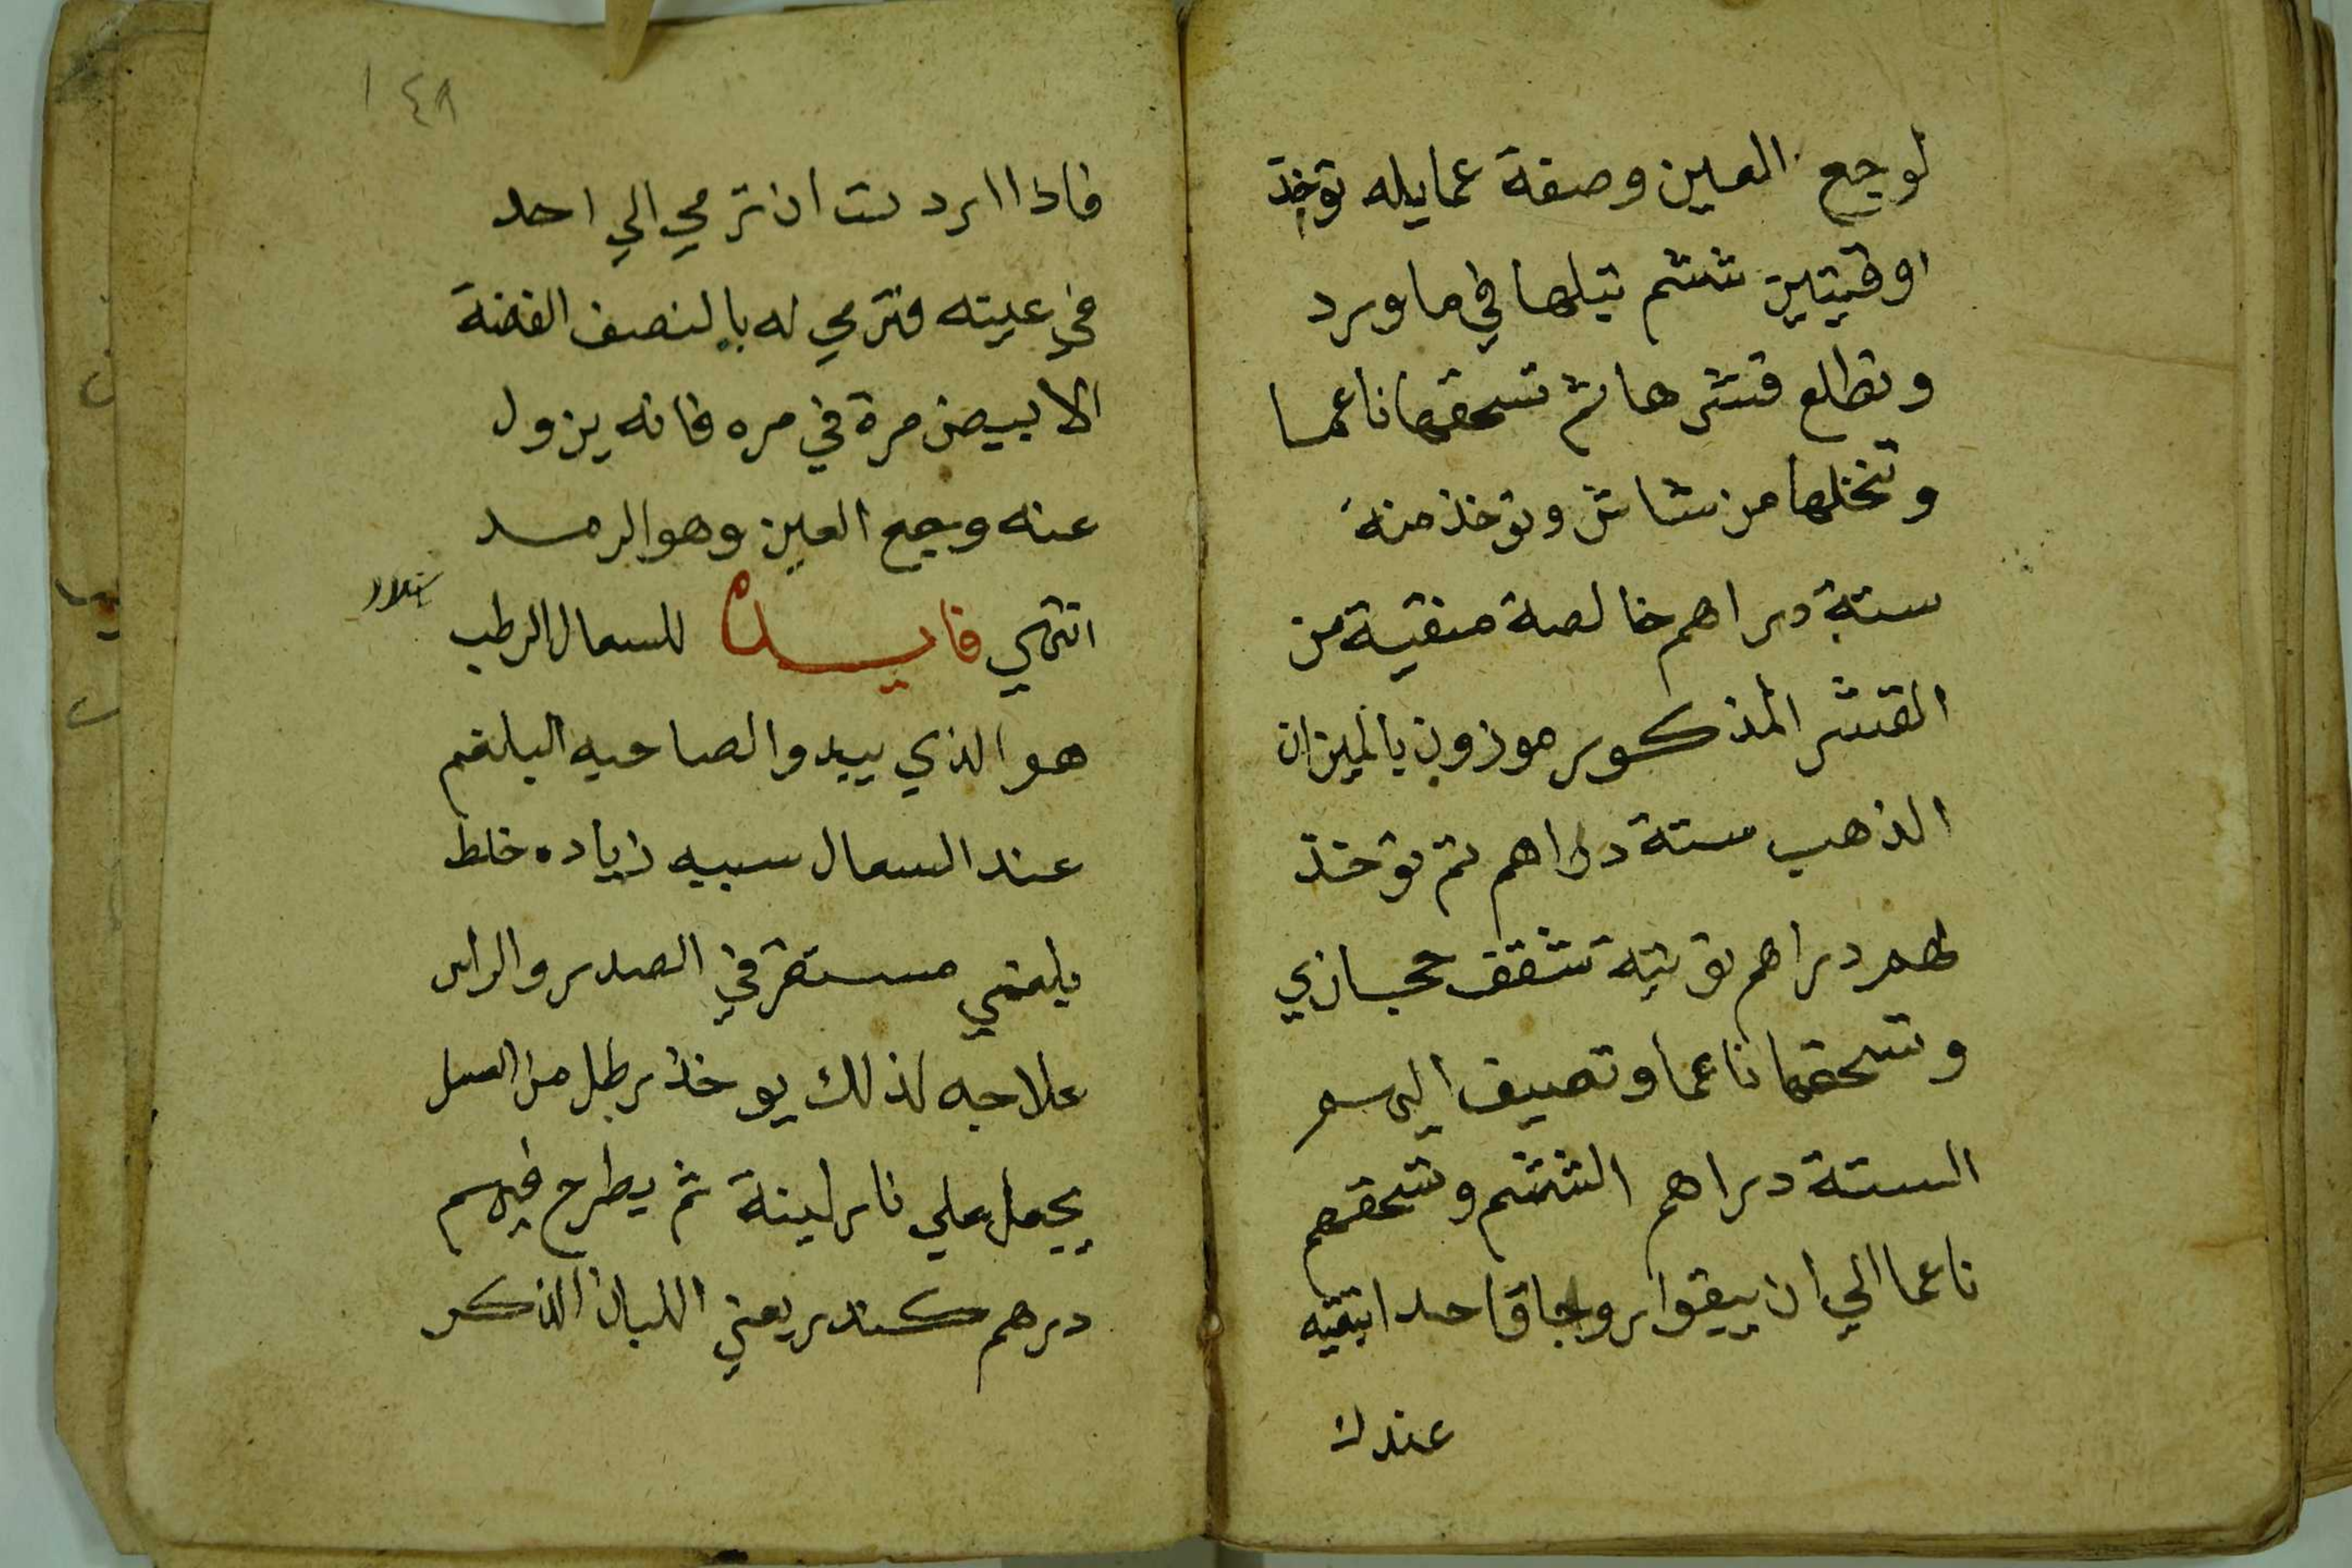 لوجع العين وصفة عمايله توخذ
اوقيتين ششم تبلها في ماورد
وتطلع قشرها ثم تسحقها ناعما
وتنخلها من شاش وتوخذ منه
ستة دراهم خالصة منقية من
القشر المذكور موزون بالميزان
الذهب ستة دراهم ثم توخذ
دراهم توتية شقف حجازي
وتسحقها ناعما وتضيف اليهم
الستة دراهم الششم وتسحقهم
ناعما الي ان يبقوا روحا واحدا تبقيه
عندك
١٤٨
فاذا اردت ان ترمي الي احد
في عينه فترمي له بالنصف الفضة
الابيض مرة في مره فانه يزول
عنه وجع العين وهو الرمد
انتهي فايدة للسعال الرطب
هو الذي يبدوا لصاحبه البلغم
عند السعال سببه زياده خلط
بلغمي مستقر في الصدر والراس
علاجه لذلك يوخذ رطل من العسل
يجعل علي نار لينة ثم يطرح فيه
درهم كندر يعني اللبان الذكر